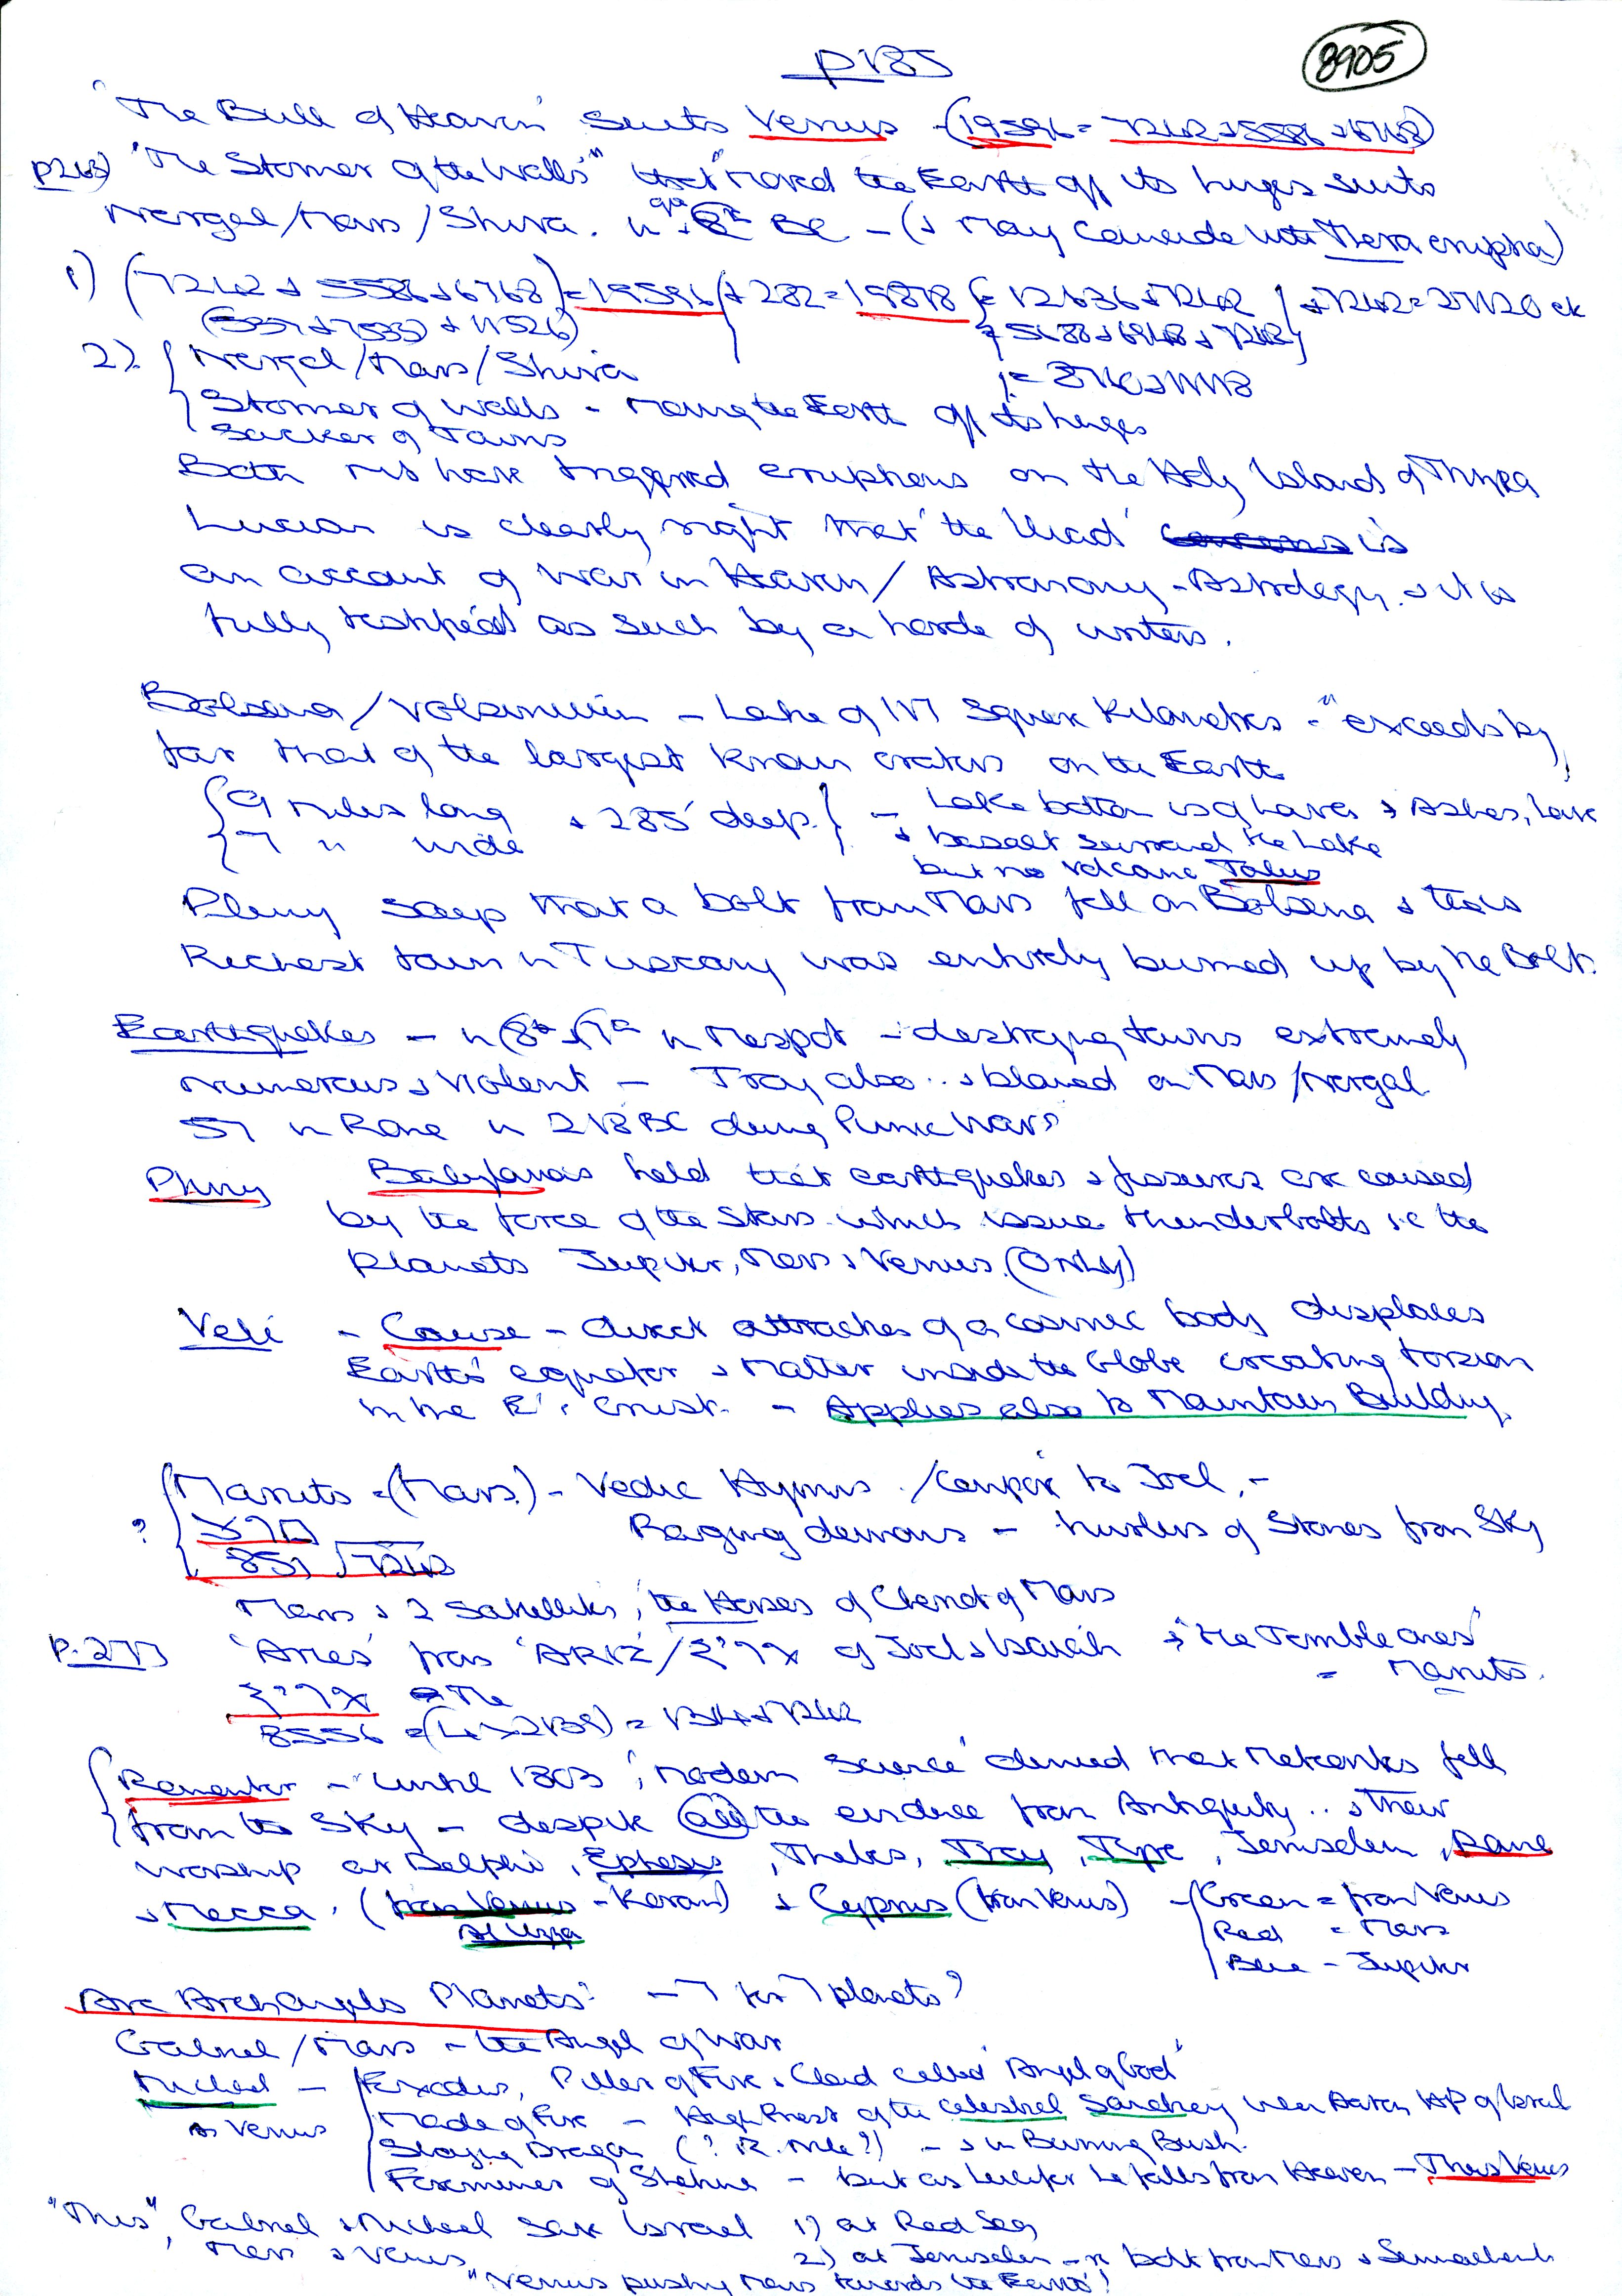 p185
8905
'The Bull of Heaven' suits Venus - (19596 = 7242 + 5586 + 6768)
p263) "The Stormer of the Walls" that "moved the Earth off its hinges suits
Nergal/Mars/Shiva. in 8th BC - (& may coincide with Thera eruption)
1) (7242 + 5586 + 6768) = 19596 + 282 = 19878 = 12636 + 7242 / + 7242 = 27120 ek
2) Nergal/Mars/Shiva
Stormer of Walls - moving the Earth off its hinges
Sacker of Towns
Both must have triggered eruptions on the Holy Island of
Lucian is clearly right that 'the Iliad' is
an account of War in Heaven / Astronomy - Astrology. & it is
fully testified as such by a horde of writers.
Bolsena/Volsinium - Lake of 117 Square Kilometres - "exceeds by
far that of the largest known craters on the Earth
9 miles long & 285' deep - Lake bottom is of lava & Ashes, lava
7 " wide & basalt surround the Lake
but no volcanic Talus
Pliny says that a bolt from Mars fell on Bolsena & this
Richest town in Tuscany was entirely burned up by the Bolt.
Earthquakes - in 8th & 7th in Mespot - destroying towns extremely
numerous & violent - Troy also .. & blamed on Mars/Nergal
57 in Rome in 218 BC during Punic Wars
Pliny Babylonians held that earthquakes & fissures are caused
by the force of the Stars which issue thunderbolts i.e the
planets Jupiter, Mars & Venus. (Only)
Veli - Cause - direct attraches of a cosmic body displaces
Earth's equator & matter inside the Globe creating torsion
in the E's crust. - Applies also to Mountain Building.
Maruts = (Mars) - Vedic Hymns / Compare to Joel, -
? Raging demons - hurlers of Stones from Sky
851
Mars & 2 Satellites, the Horses of Chariot of Mars
P. 273 'Ares' from 'ARIZ / עריץ of Joel & Isaiah & "the Terrible ones"
= Maruts.
8556 = (4 x 2139) = 1314 + 7242
Remember - until 1803, 'modern Science' denied that Meteorites fell
from the Sky - despite all the evidence from Antiquity .. & their
worship at Delphi, Ephesus, Thebes, Troy, Tyre, Jerusalem, Rome
& Mecca. (from Venus - Koran) & Cyprus (from Venus) - Green = from Venus
Al Uzza Red = Mars
Blue - Jupiter
Are Archangels Planets? - 7 for 7 planets?
Gabriel/Mars - the Angel of War
Michael - Exodus, Pillar of Fire & Cloud called 'Angel of God'
as Venus Made of Fire - High Priest of the celestial Sanctuary when Aaron HP of Israel
Slaying Dragon - & in Burning Bush.
Forerunner of Shekina - but as Lucifer he falls from Heaven - Thus Venus
"Thus", Gabriel & Michael save Israel 1) at Red Sea
Mars & Venus 2) at Jerusalem - in bolt from Mars & Sennacherib
"Venus pushing Mars towards the Earth"!